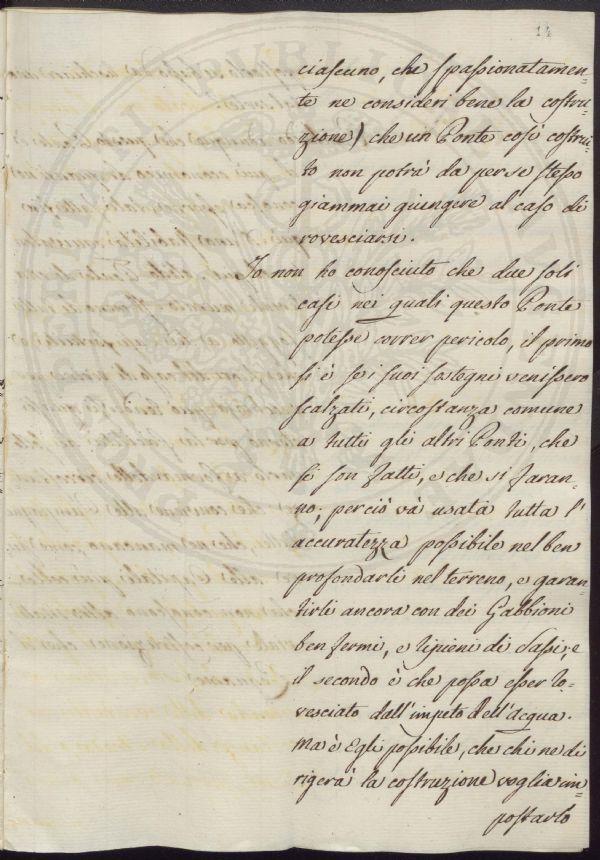 14
ciascuno, che spassionatamen=
te ne consideri bene la costru=
zione) che un Ponte così costrui=
to non potrà da per se stesso
giammai giungere al caso di
rovesciarsi.
Io non ho conosciuto che due soli
casi nei quali questo Ponte
potesse correr pericolo, il primo
si è se i suoi sostegni venissero
scalzati, circostanza comune
a tutti gli altri Ponti, che
si son fatti, e che si faran=
no; perciò và usata tutta l'
accuratezza possibile nel ben
profondarli nel terreno, e garan=
tirli ancora con dei Gabbioni
ben fermi, e ripieni di Sassi; e
il secondo è che possa esser ro=
vesciato dall'impeto dell'acqua.
Ma è Egli possibile, che chi ne di
rigerà la costruzione voglia im=
postarlo